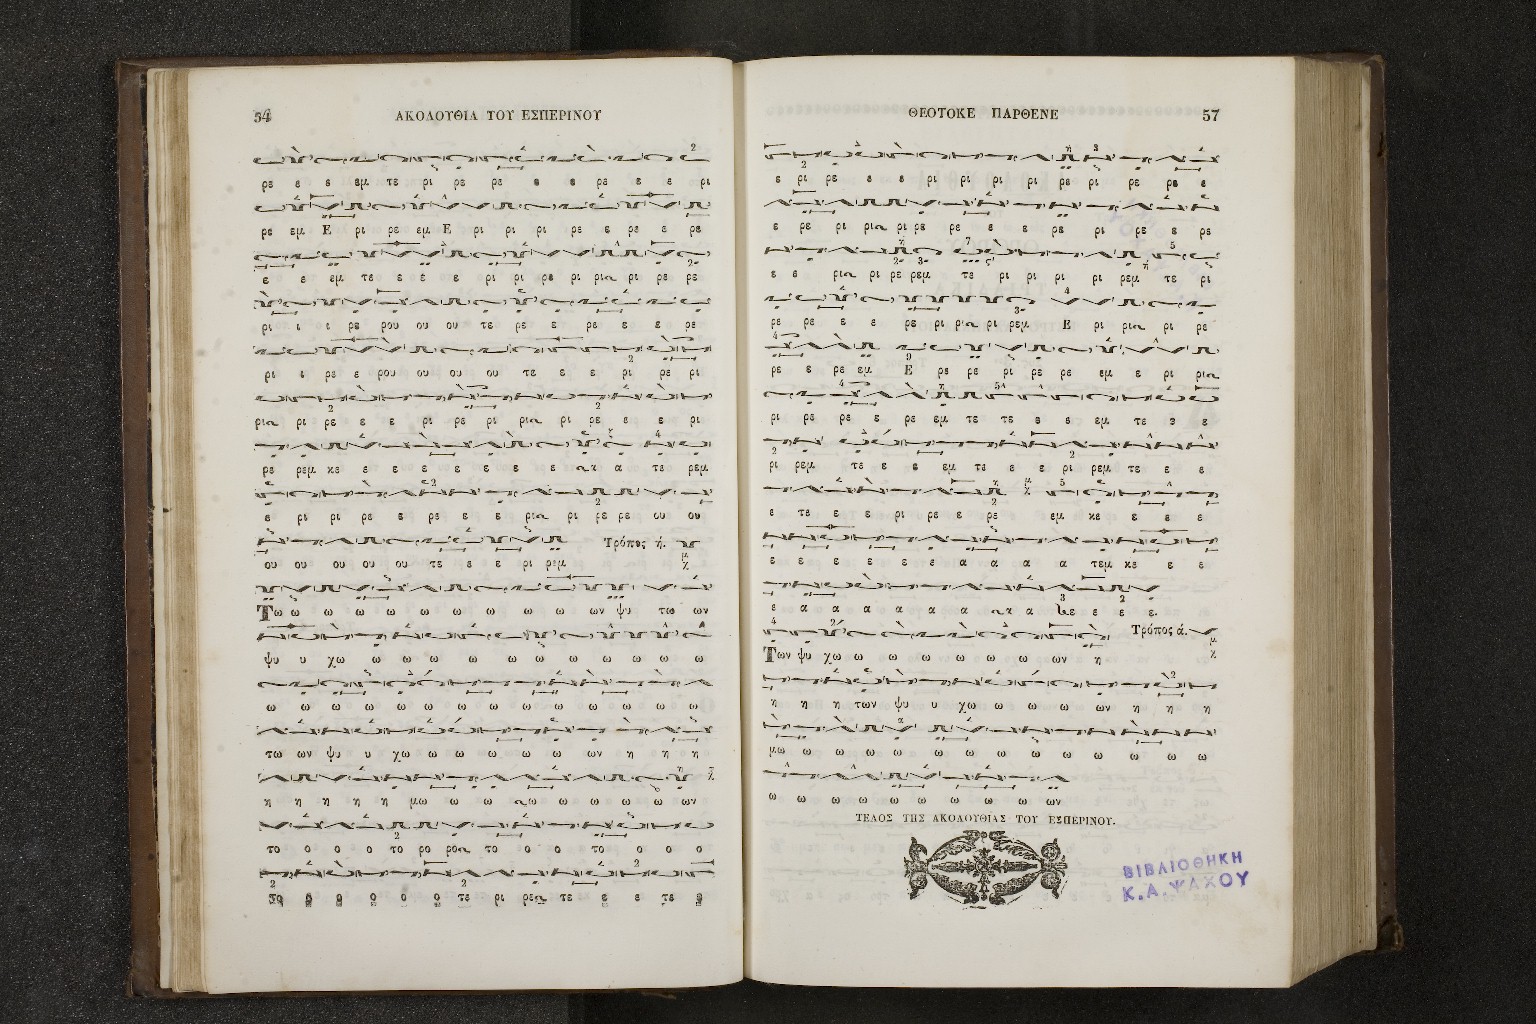 54 ΑΚΟΛΟΥΘΙΑ ΤΟΥ ΕΣΠΕΡΙΝΟΥ
ρε ε ε εμ τε ρι ρε ρε ε ε ρε ε ε ρι
ρε εμ Ε ρι ρε εμ Ε ρι ρι ρι ρε ε ρε ε ρε
ε ε εμ τε ε ε ε ρι ρι ρε ρι ρια ρι ρε ρε
ρι ι ι ρε ρου ου ου τε ρε ε ρε ε ε ρε
ρι ι ρε ε ρου ου ου ου τε ε ε ρι ρε ρι
ρια ρι ρε ε ε ρι ρε ρι ρια ρι ρε ε ε ρι
ρε ρεμ κε ε ε ε ε ε ε ε α α τε ρεμ
ε ρι ρι ρε ε ρε ε ε ρια ρι ρε ρε ου ου
Τρόπος ή.
ου ου ου ου ου τε ε ε ρι ρεμ
Τω ω ω ω ω ω ω ω ω ω ων ψυ τω ων
ψυ υ χω ω ω ω ω ω ω ω ω ω ω
ω ω ω ω ω ω ω ω ω ω ω ω ω ω
τω ων ψυ υ χω ω ω ω ω ω ων η η η
η η η η η μω ω ω ω ω ω ω ω ω ων
το ο ο ο το ρο ρο το ο ο το ο ο ο
το ο ο ο ο ο τε ρι ρε τε ε ε τε ε
ΘΕΟΤΟΚΕ ΠΑΡΘΕΝΕ 57
ε ρι ρε ε ε ρι ρι ρι ρι ρε ρι ρε ρε ε
ε ρε ρι ρια ρι ρε ρε ε ε ε ρε ρι ρε ε ρε
ε ε ρια ρι ρε ρεμ τε ρι ρι ρι ρι ρεμ τε ρι
ρε ρε ε ε ρε ρι ρια ρι ρεμ Ε ρι ρια ρι ρε
ρε ε ρε εμ Ε ρε ρε ρι ρε ρε εμ ε ρι ρια
ρι ρε ρε ε ρε εμ τε τε ε ε εμ τε ε ε
ρι ρεμ τε ε ε εμ τε ε ε ρι ρεμ τε ε ε
ε τε ε ε ρι ρε ε ρε εμ κε ε ε ε
ε ε ε ε ε ε α α α α τεμ κε ε ε
ε α α α α α α α α ε ε ε ε.
Τρόπος ά.
Των ψυ χω ω ω ω ω ω ω ων η
η η η των ψυ υ χω ω ω ω ων η η η
μω ω ω ω ω ω ω ω ω ω ω ω ω ω
ω ω ω ω ω ω ω ω ω ων
ΤΕΛΟΣ ΤΗΣ ΑΚΟΛΟΥΘΙΑΣ ΤΟΥ ΕΣΠΕΡΙΝΟΥ.
ΒΙΒΛΙΟΘΗΚΗ
Κ.Α.ΨΑΧΟΥ